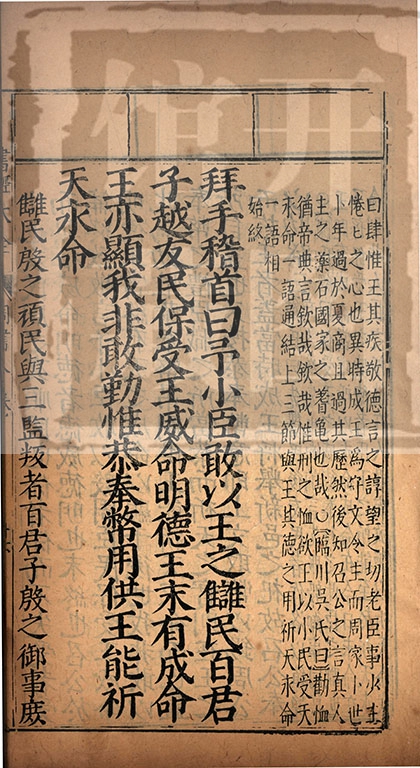 曰肆惟王其疾敬德言之諄望之切老臣事少主
惓匕之心也異時成王爲守文令主而周家卜世
卜年過於夏商且過其歷然後知召公之言真人
主之藥石國家之蓍龜也哉○臨川吳氏曰勸恤
猶帝典言欽哉欽哉惟刑之恤欲王以小民受天
永命一語通結上三節與王其德之用祈天永命
一語相
始終
拜手稽首曰予小臣敢以王之讎民百君
子越友民保受王威命明德王末有成命
王亦顯我非敢勤惟恭奉幣用供王能祈
天永命
讎民殷之頑民與三監叛者百君子殷之御事庶